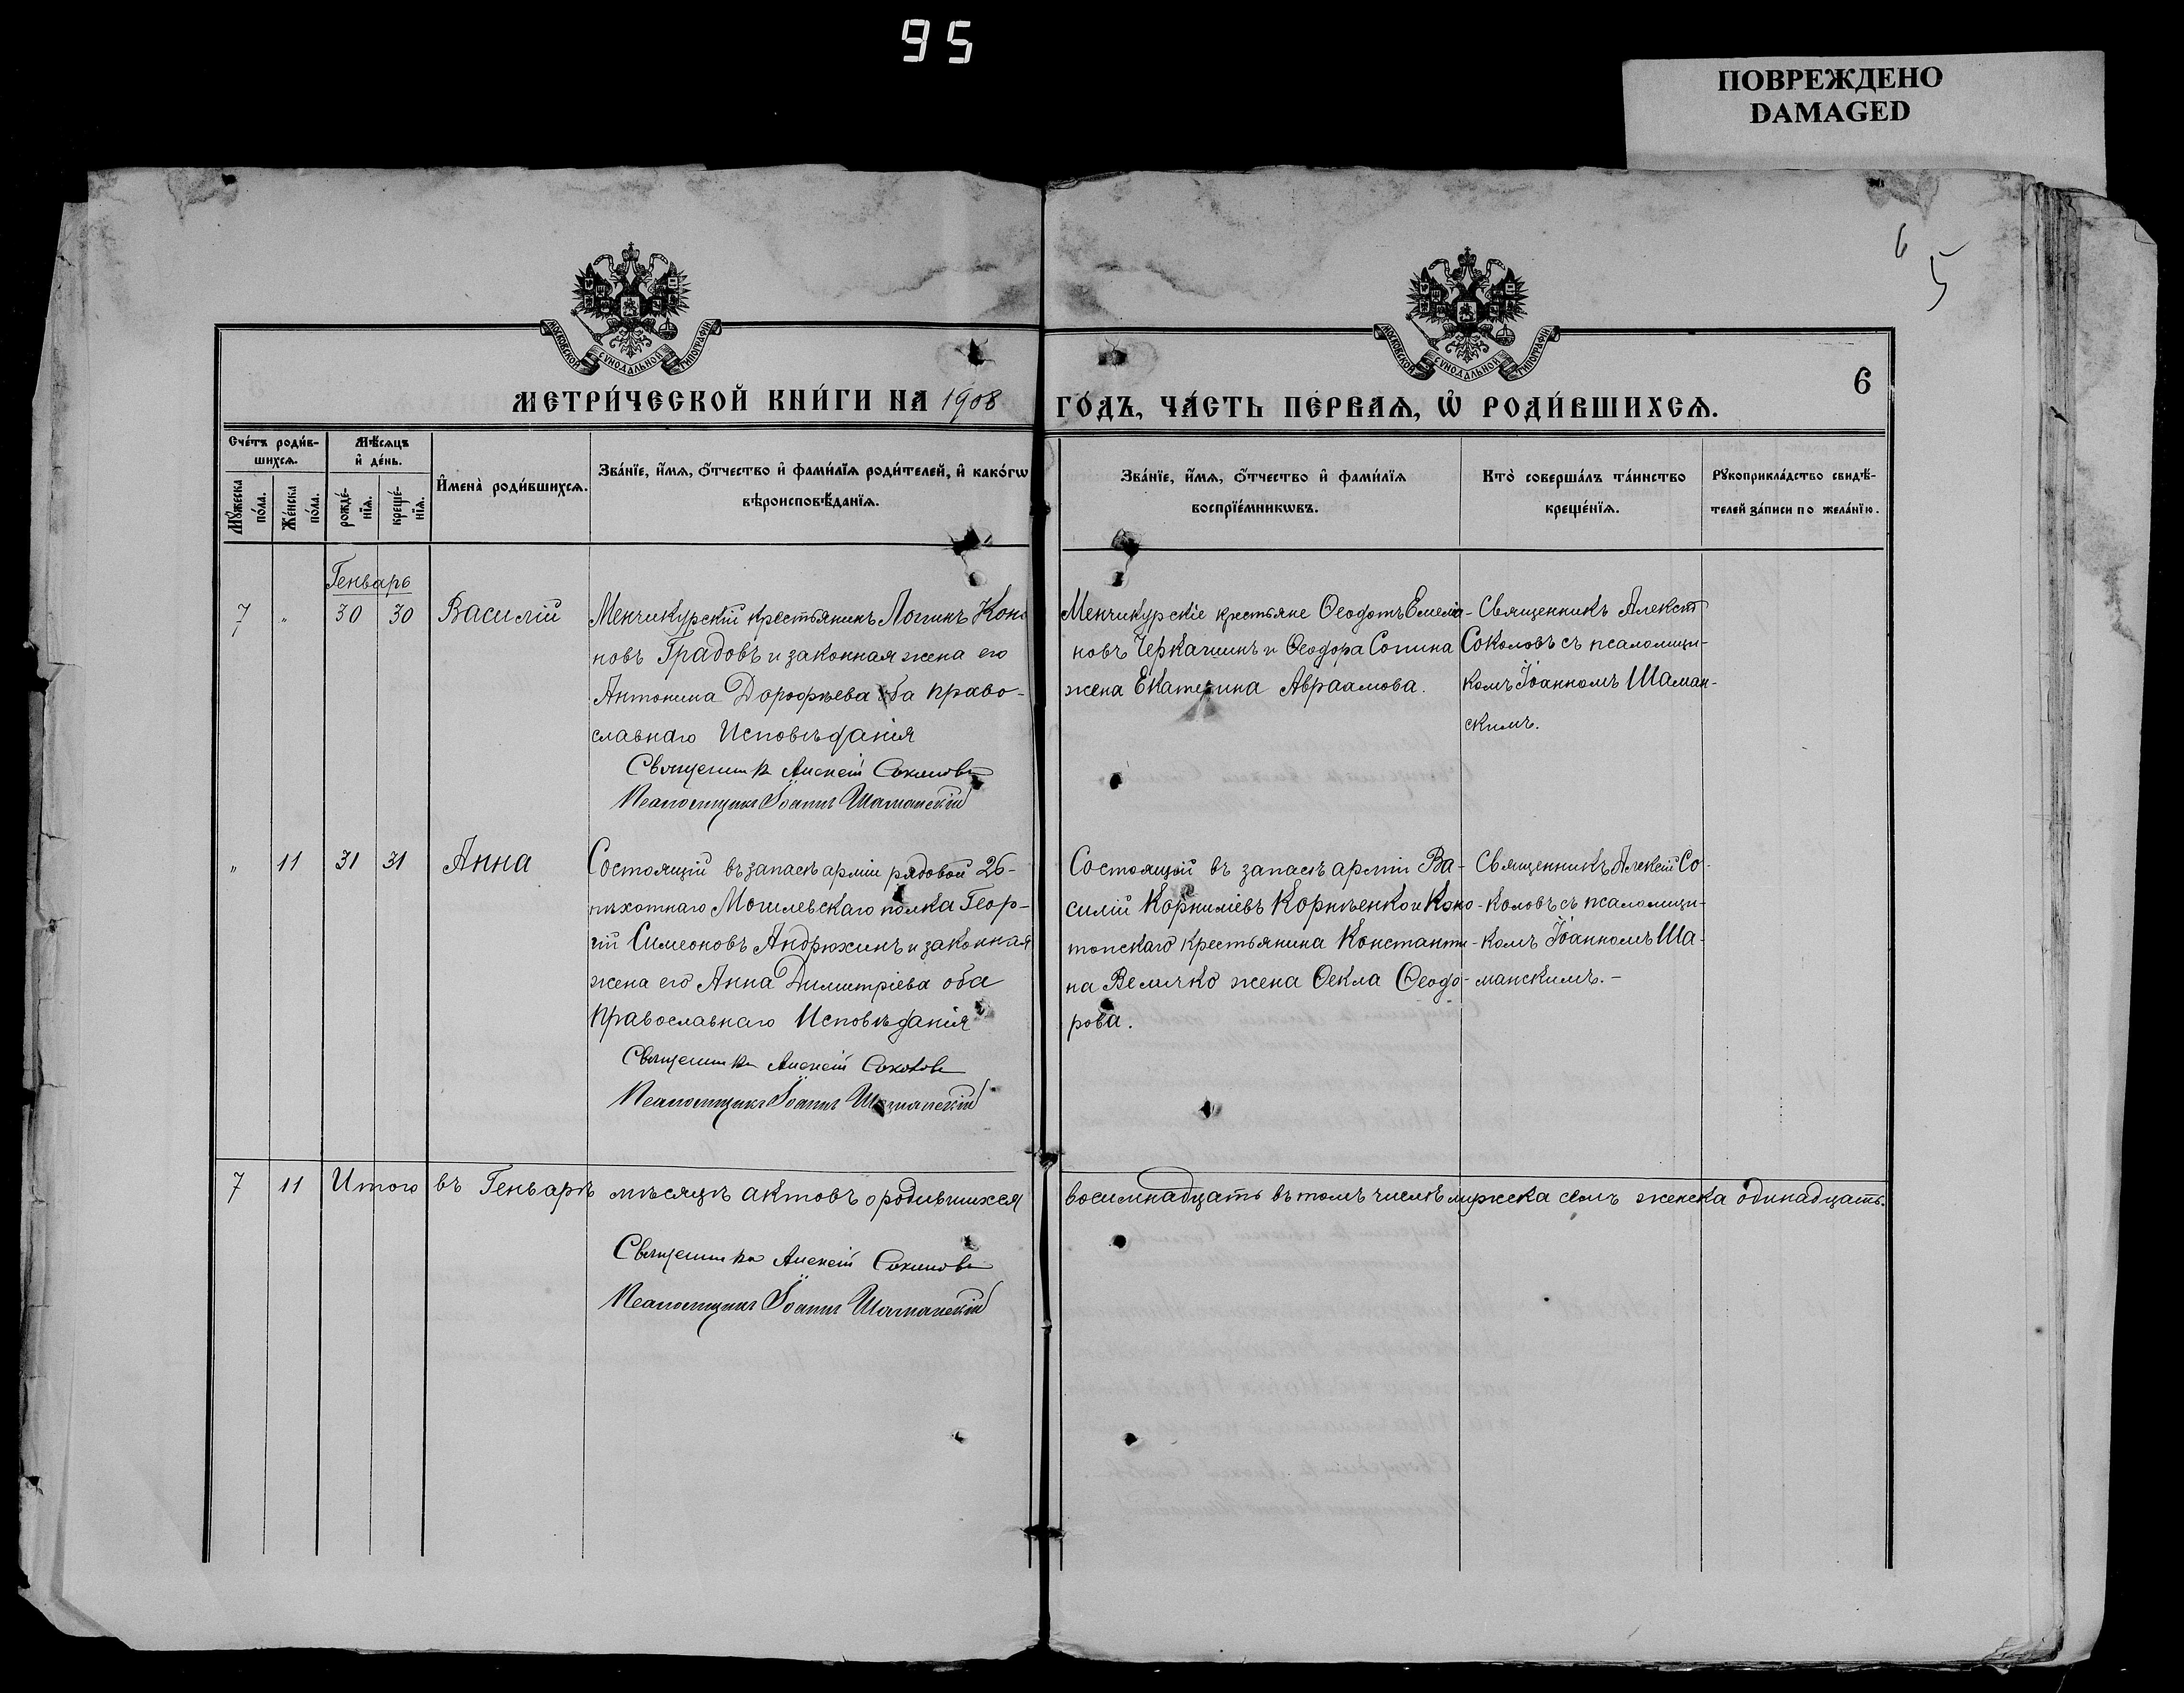 95
ПОВРЕЖДЕНО
DAMAGED
6
5
МОСКОВСКОЙ СѴНОДАЛЬНОЙ ТИПОГРАФІИ
МОСКОВСКОЙ СѴНОДАЛЬНОЙ ТИПОГРАФІИ
6
МЕТРИ́ЧЕСКОЙ КНИ́ГИ НА 1908 ГО́ДЪ, ЧА́СТЬ ПЕ́РВАѦ, Ѡ҆ РОДИ́ВШИХСѦ.
Сче́тъ роди́в-
шихсѧ.
Мѣ́сѧцъ
и҆ де́нь.
Мꙋ́жеска
по́ла.
Же́нска
по́ла.
рожде́-
нїѧ.
креще́-
нїѧ.
И҆мена̀ роди́вшихсѧ.
Зва́нїе, и҆́мѧ, ѻ҆́тчество и҆ фами́лїѧ роди́телей, и҆ како́гѡ
вѣроисповѣ́данїѧ.
Зва́нїе, и҆́мѧ, ѻ҆́тчество и҆ фами́лїѧ
воспрїе́мникѡвъ.
Кто̀ соверша́лъ та́инство
креще́нїѧ.
Рꙋкоприкла́дство свидѣ́-
телей за́писи по жела́нїю.
Генварь
7 " 30 30 Василій
Менчикурскій крестьянинъ Логинъ Коно
новъ Градовъ и законная жена его
Антонина Дорофѣева оба право-
славнаго Исповѣданія
Священникъ Алексій Соколовъ
Псаломщикъ Іоаннъ Шаманскій
Менчикурскіе крестьяне Ѳеодотъ Емелія-
новъ Черкашинъ и Ѳеодора Сопина
жена Екатерина Авраамова.
Священникъ Алексій
Соколовъ съ псаломщи-
комъ Іоанномъ Шаман-
скимъ.
" 11 31 31 Анна
Состоящій въ запасѣ арміи рядовой 26-
пѣхотнаго Могилевскаго полка Геор-
гій Симеоновъ Андрюхинъ и законная
жена его Анна Димитріева оба
Православнаго Исповѣданія
Священникъ Алексій Соколовъ
Псаломщикъ Іоаннъ Шаманскій
Состоящій въ запасѣ арміи Ва-
силій Корниліевъ Корнѣенко и Коно-
топскаго крестьянина Константи-
на Величко жена Ѳекла Ѳеодо-
рова.
Священникъ Алексій Со-
коловъ съ псаломщи-
комъ Іоанномъ Ша-
манскимъ.-
7 11 Итого въ Генварѣ мѣсяцѣ актовъ о родившихся восимнадцать въ томъ числѣ мужеска семь женска одинадцать.
Священникъ Алексій Соколовъ
Псаломщикъ Іоаннъ Шаманскій